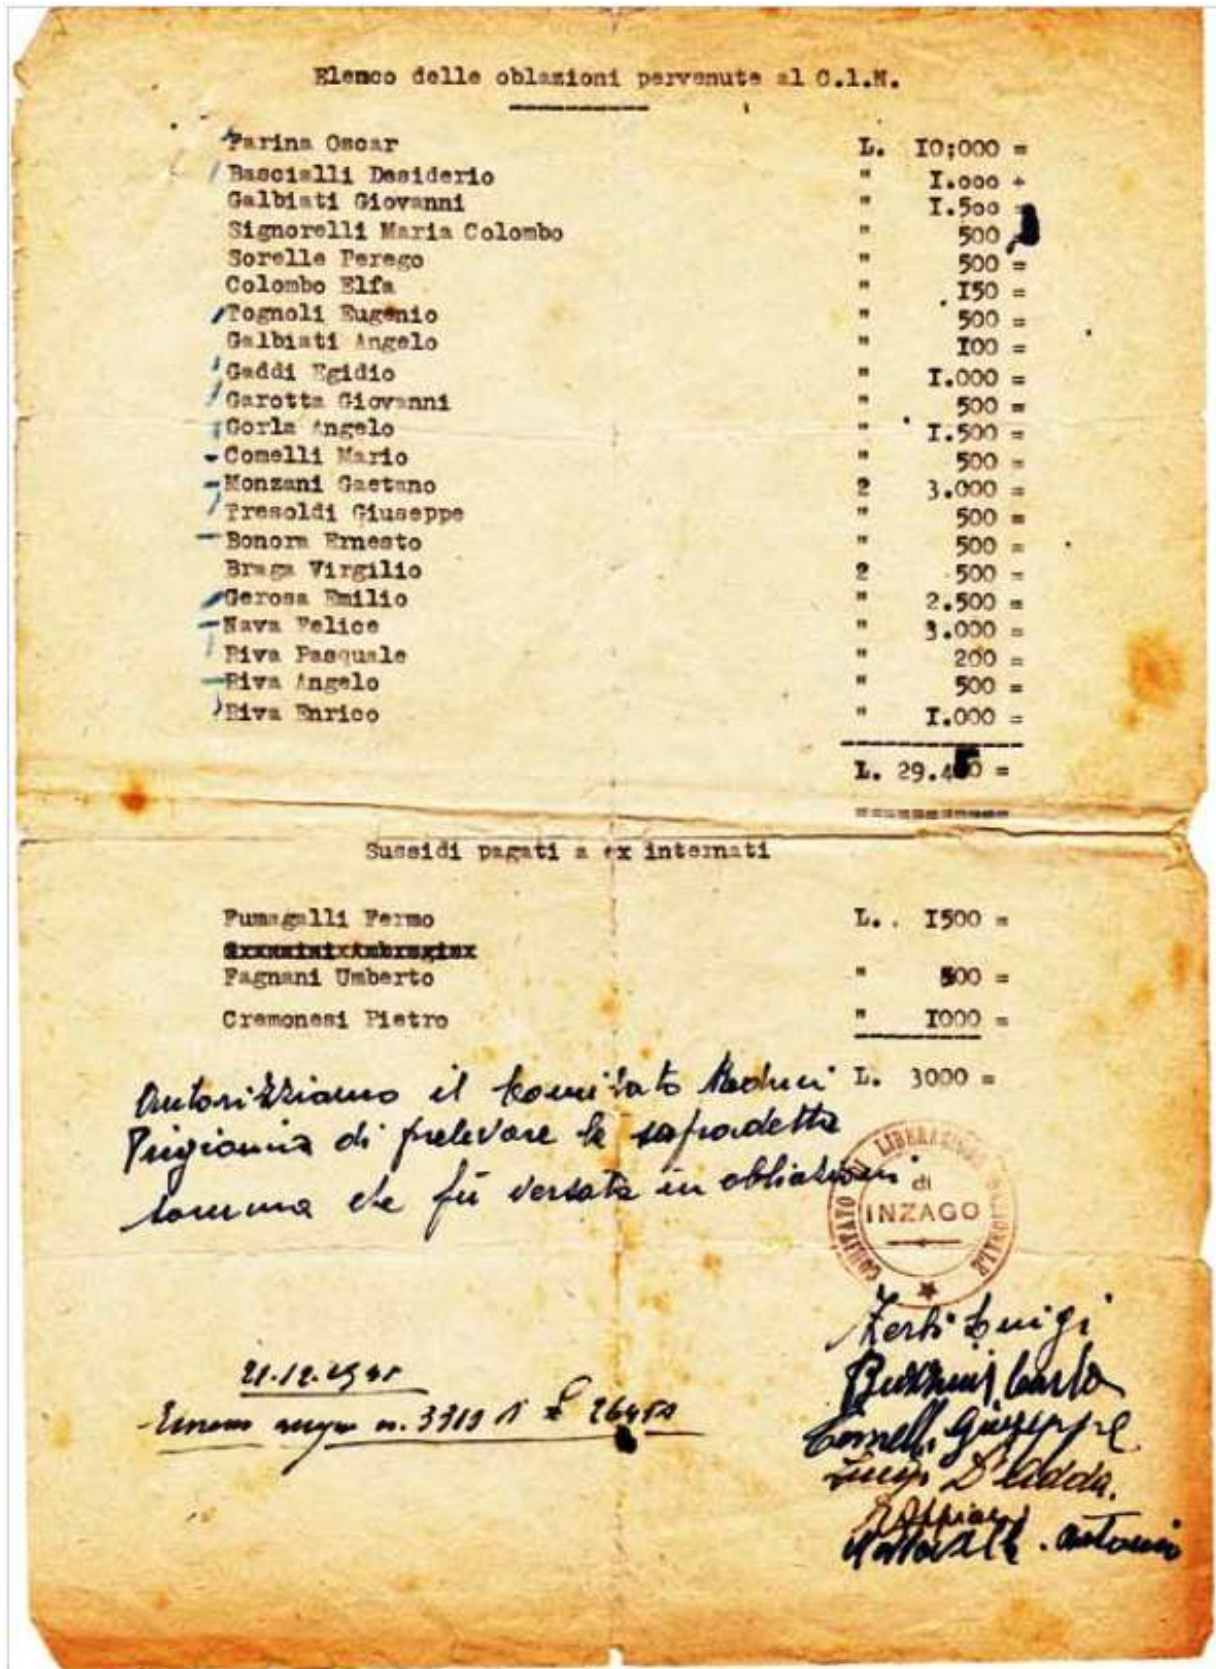 Elenco delle oblazioni pervenute al C.l.N.
Farina Oscar L. IO;000 =
Bascialli Desiderio " I.000 =
Galbiati Giovanni " I.500 =
Signorelli Maria Colombo " 500
Sorelle Perego " 500 =
Colombo Elfa " I50 =
Tognoli Eugenio " 500 =
Galbiati Angelo " I00 =
Gaddi Egidio " I.000 =
Garotta Giovanni " 500 =
Gorla Angelo " I.500 =
Comelli Mario " 500 =
Monzani Gaetano 2 3.000 =
Tresoldi Giuseppe " 500 =
Bonora Ernesto " 500 =
Braga Virgilio 2 500 =
Gerosa Emilio " 2.500 =
Nava Felice " 3.000 =
Riva Pasquale " 200 =
Riva Angelo " 500 =
Riva Enrico " I.000 =
L. 29.450 =
Sussidi pagati a ex internati
Fumagalli Fermo L. I500 =
Fagnani Umberto " 500 =
Cremonesi Pietro " I000 =
L. 3000 =
Autorizziamo il Comitato Reduci
Prigionia di prelevare la sopradetta
somma che fù versata in obliazioni
COMITATO DI LIBERAZIONE NAZIONALE
di
INZAGO
21.12.1945
n. 3319 £ 26450
Luigi
Carlo
Comelli Giuseppe
Luigi D'Adda.
Antonio